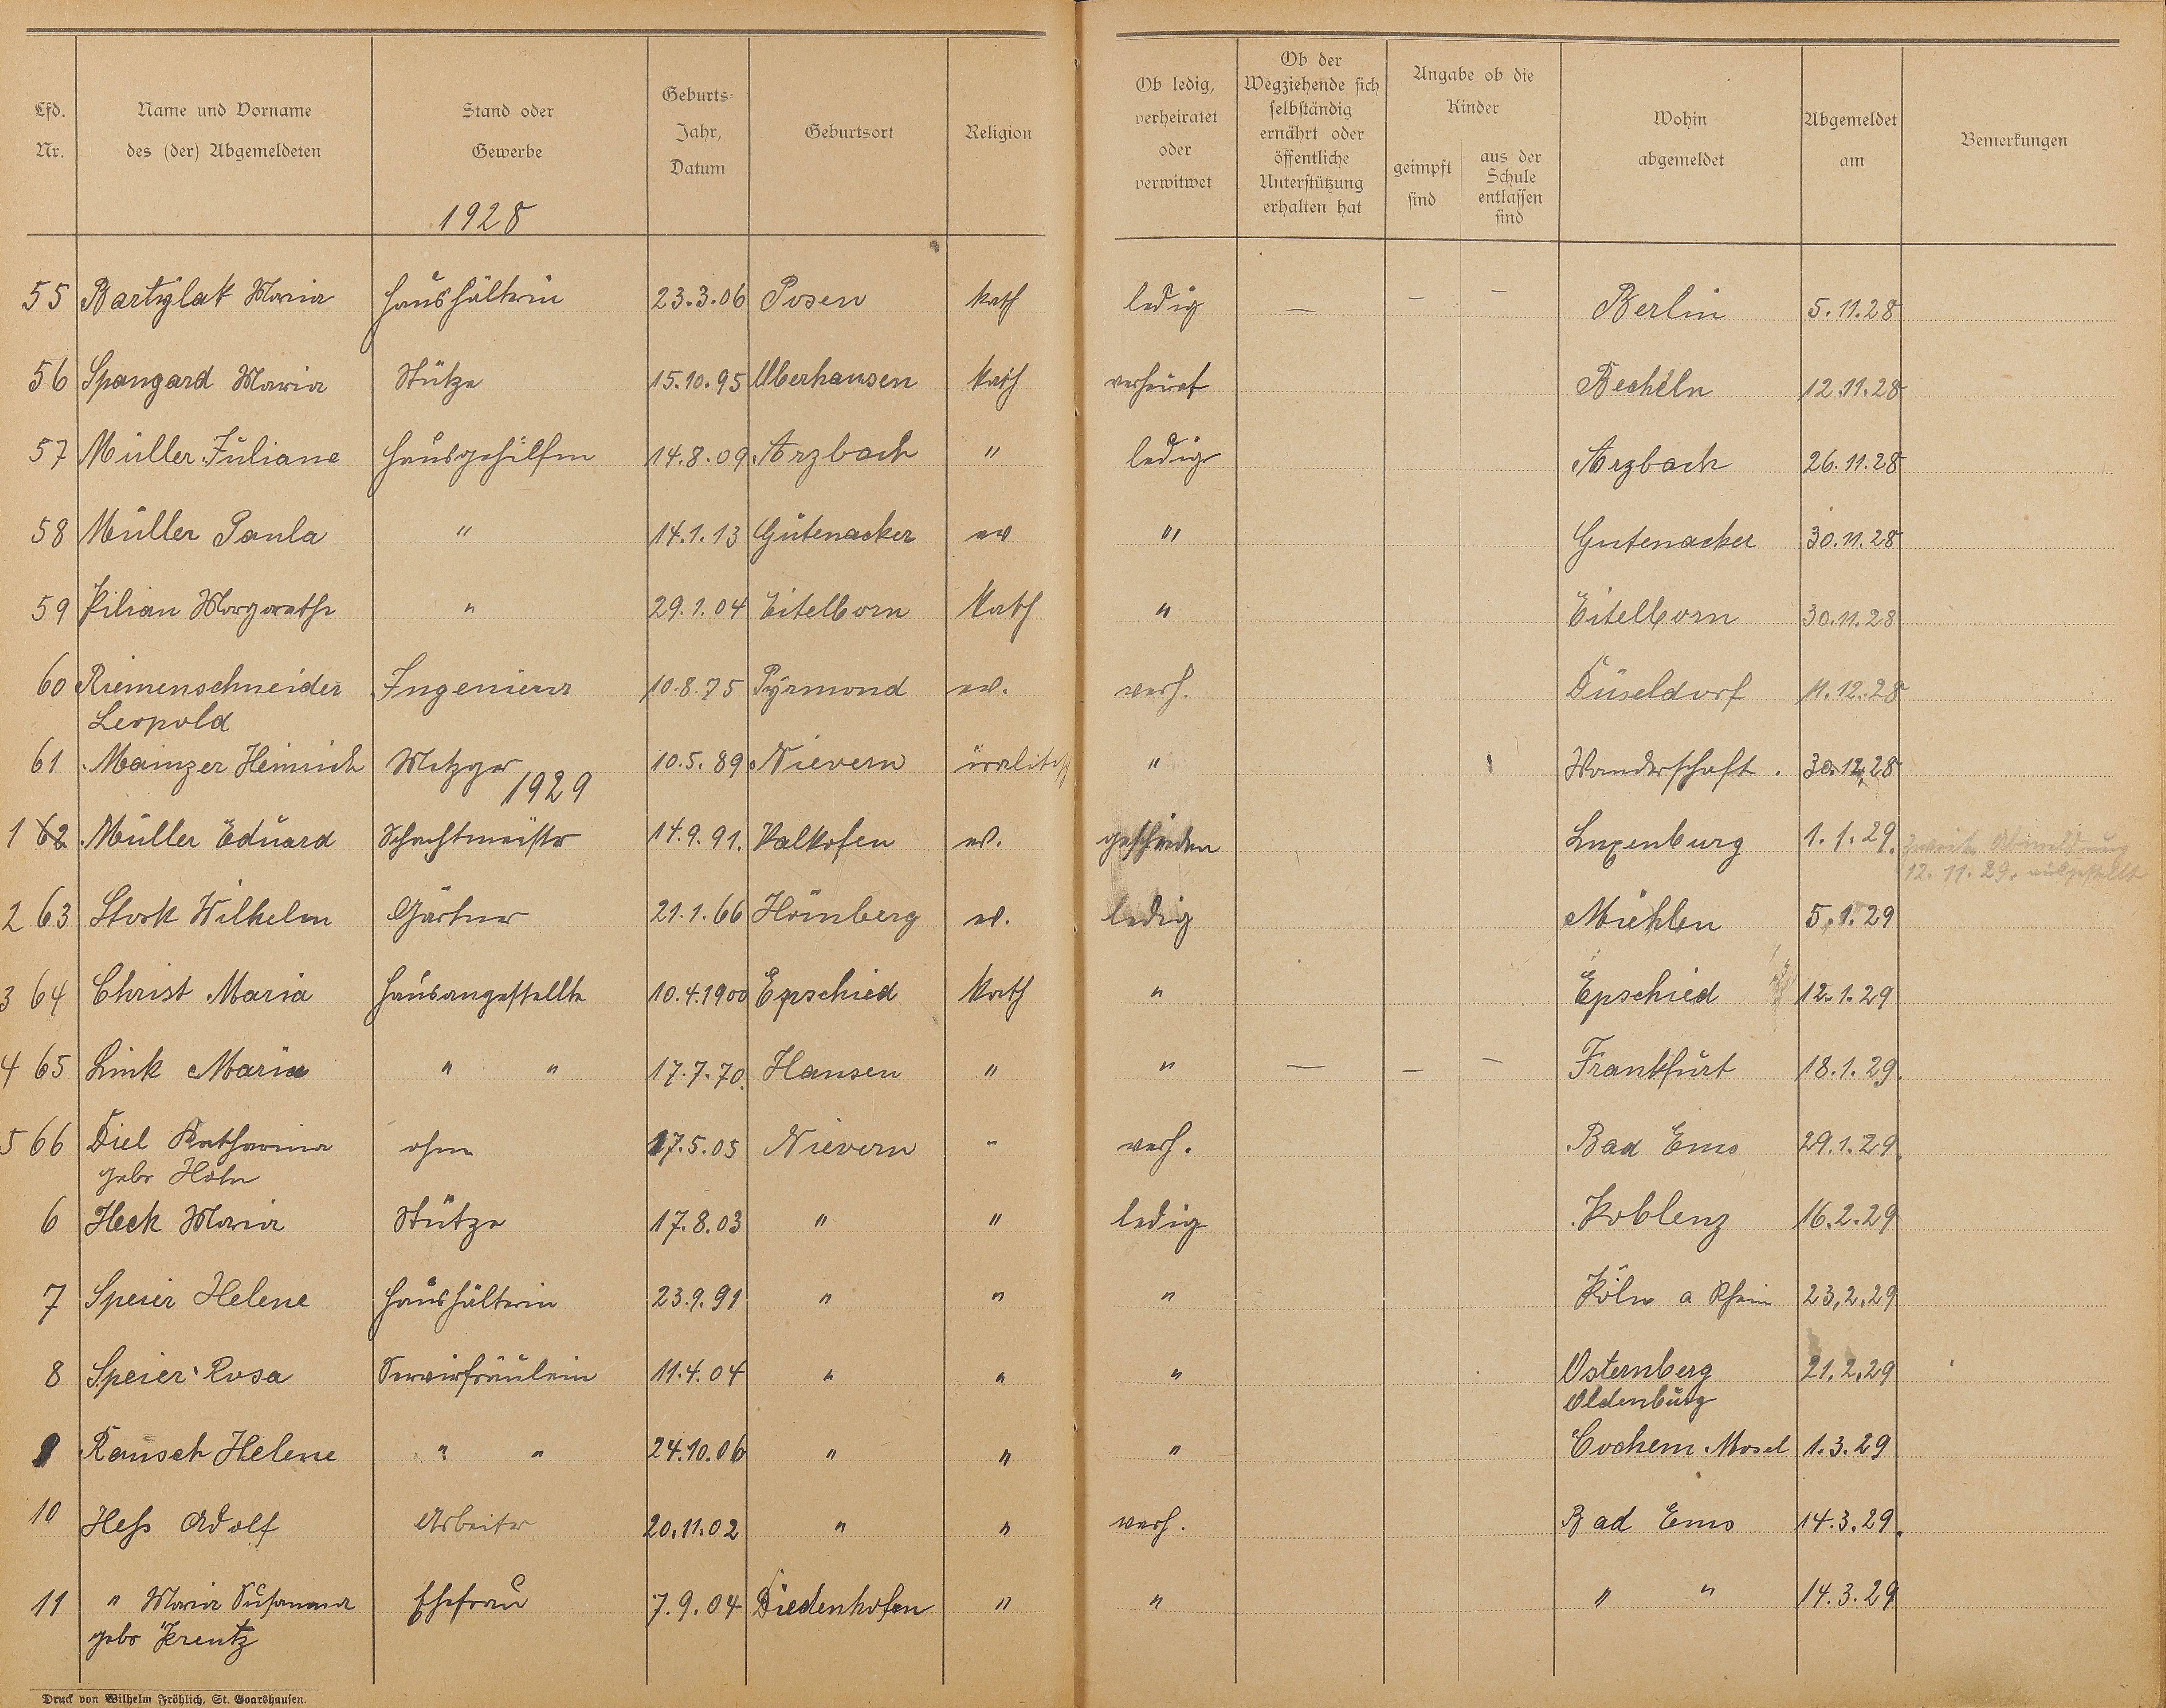 Lfd. Nr.
Name und Vorname des (der) Abgemeldeten
Stand oder Gewerbe
Geburts= Jahr, Datum
Geburtsort
Religion
Ob ledig, verheiratet oder verwitwet
Ob der Wegziehende sich selbständig ernährt oder öffentliche Unterstützung erhalten hat
Angabe ob die Kinder
geimpft sind
aus der Schule entlassen sind
Wohin abgemeldet
Abgemeldet am
Bemerkungen
1928
55 Bartylak Maria Haushälterin 23.3.06 Posen kath ledig — – – Berlin 5.11.28
56 Spangard Maria Stütze 15.10.95 Oberhausen kath verheirat Becheln 12.11.28
57 Müller Juliane Hausgehilfin 14.8.09 Arzbach " ledig Arzbach 26.11.28
58 Müller Paula " 14.1.13 Gutenacker ev " Gutenacker 30.11.28
59 Kilian Margarethe " 29.1.04 Eitelborn kath " Eitelborn 30.11.28
60 Riemenschneider Ingenieur 10.8.75 Pyrmond ev. verh. Düseldorf 11.12.28
Leopold
61 Mainzer Heinrich Metzger 10.5.89 Nievern israelitisch " Wanderschaft. 30.12.28
1929
1 62 Müller Eduard Schachtmeister 14.9.91. Kalkofen ev. geschieden Luxenburg 1.1.29. zweite Abmeldung
12.11.29. ausgestellt
2 63 Stork Wilhelm Gärtner 21.1.66 Hömberg ev. ledig Miehlen 5.1.29
3 64 Christ Maria Hausangestellte 10.4.1900 Epschied kath " Epschied 12.1.29
4 65 Link Maria " " 17.7.70. Hausen " " — — – Frankfurt 18.1.29.
5 66 Diel Katharina ohne 17.5.05 Nievern " verh. Bad Ems 29.1.29.
gebr Hohn
6 Heck Maria Stütze 17.8.03 " " ledig Koblenz 16.2.29
7 Speier Helene Haushälterin 23.9.91 " " " Köln a Rhein 23.2.29
8 Speier Rosa Servierfräulein 11.4.04 " " " Osternberg 21.2.29
Oldenburg
9 Rausch Helene " " 24.10.06 " " " Cochem. Mosel 1.3.29
10 Heß Adolf Arbeiter 20.11.02 " " verh. Bad Ems 14.3.29.
11 " Maria Susanna Ehefrau 7.9.04 Diedenhofen " " " " 14.3.29
gebr Krentz
Druck von Wilhelm Fröhlich, St. Goarshausen.